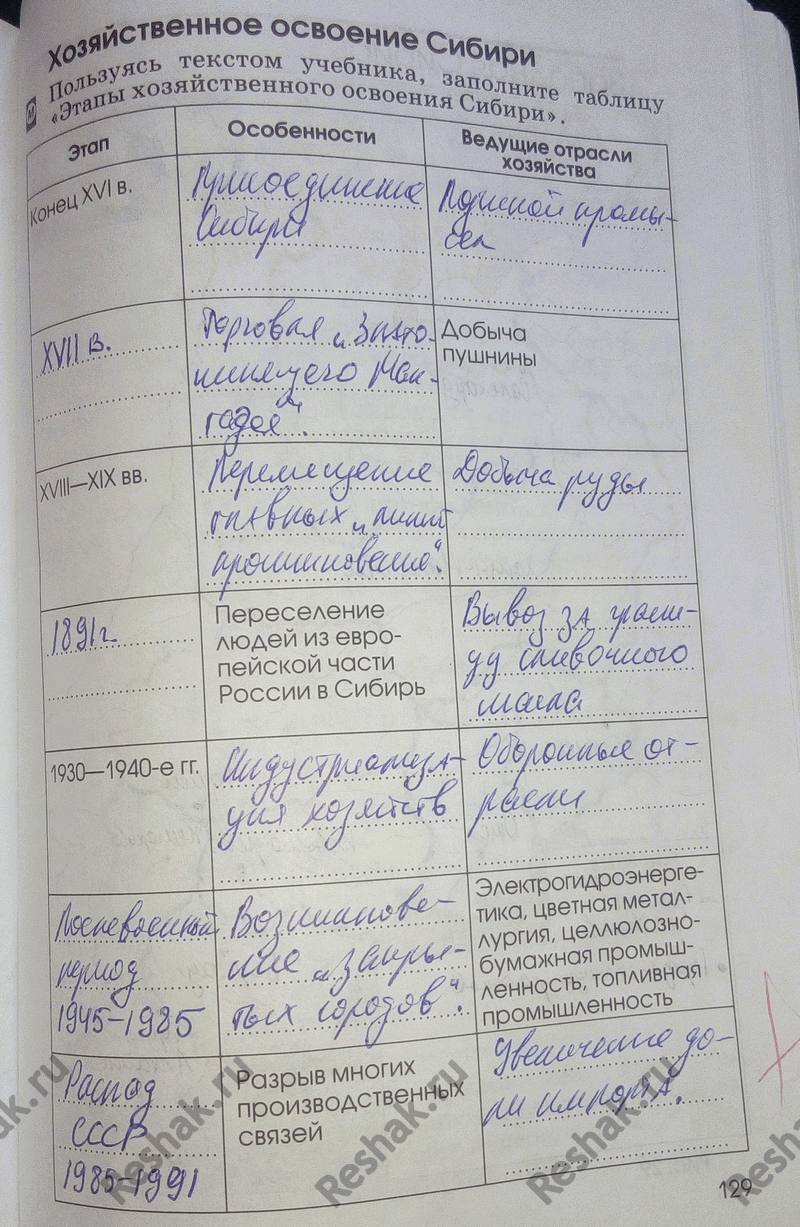 Хозяйственное освоение Сибири
Пользуясь текстом учебника, заполните таблицу
«Этапы хозяйственного освоения Сибири».
Этап
Особенности
Ведущие отрасли
хозяйства
Конец XVI в.
Присоединение
Сибири
Пушной промы-
сел
XVII в.
Торговая "Злато-
кипящего Ман-
газея".
Добыча
пушнины
XVIII—XIX вв.
Перемещение
главных "линий
проникновения".
Добыча руды
1891г
Переселение
людей из евро-
пейской части
России в Сибирь
Вывоз за грани-
цу сливочного
масла
1930—1940-е гг.
Индустриализа-
ция хозяйств
Оборонные от-
расли
Послевоенный
период
1945-1985
Возникнове-
ние "закры-
тых городов".
Электрогидроэнерге-
тика, цветная метал-
лургия, целлюлозно-
бумажная промыш-
ленность, топливная
промышленность
Распад
СССР
1985-1991
Разрыв многих
производственных
связей
Увеличение до-
ли импорта.
129
Reshak.ru
Reshak.ru
Reshak.ru